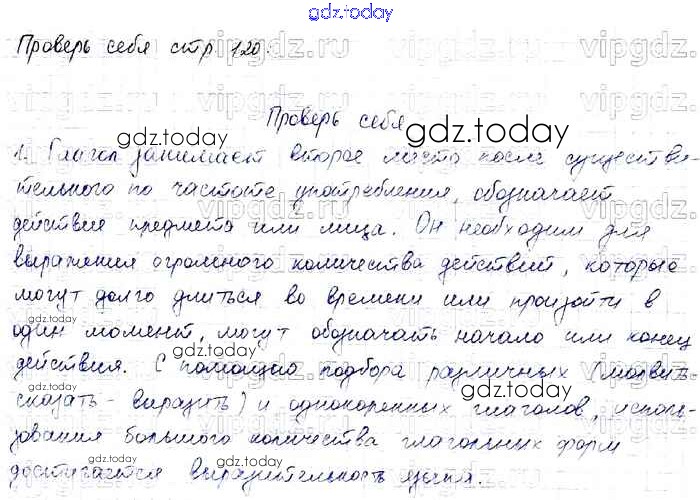 gdz.today
Проверь себя стр 120.
Проверь себя
1. Глагол занимает второе место после существи-
тельного по частоте употребления, обозначает
действие предмета или лица. Он необходим для
выражения огромного количества действий, которые
могут долго длиться во времени или произойти в
один момент, могут обозначать начало или конец
действия. С помощью подбора различных (молвить
сказать - выразить) и однокоренных глаголов, исполь-
зования большого количества глагольных форм
достигается выразительность языка.